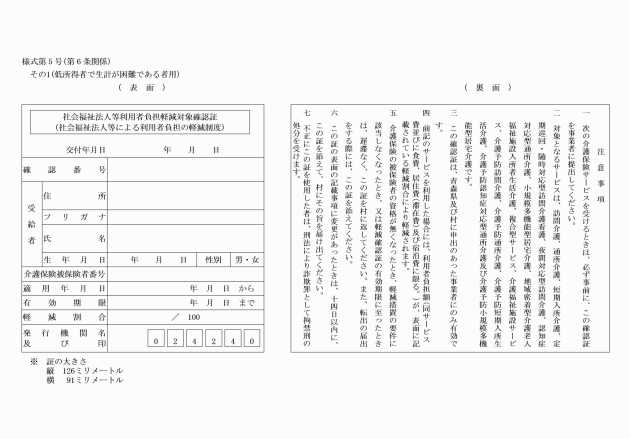 様式第5号(第6条関係)
その1(低所得者で生計が困難である者用)
( 表 面 )
社会福祉法人等利用者負担軽減対象確認証
(社会福祉法人等による利用者負担の軽減制度)
交付年月日 年 月 日
確認番号
受給者
住所
フリガナ
氏名
生年月日 年 月 日 性別 男・女
介護保険被保険者番号
適用年月日 年 月 日 から
有効期限 年 月 日 まで
軽減割合 / 100
発行機関名
及び印
0 2 4 2 4 0
※ 証の大きさ
縦 126ミリメートル
横 91ミリメートル
( 裏 面 )
注 意 事 項
一 次の介護保険サービスを受けるときは、必ず事前に、この確認証
を事業者に提出してください。
二 対象となるサービスは、訪問介護、通所介護、短期入所介護、定
期巡回・随時対応型訪問介護看護、夜間対応型訪問介護、認知症
対応型通所介護、小規模多機能型居宅介護、地域密着型介護老人
福祉施設入所者生活介護、複合型サービス、介護福祉施設サービ
ス、介護予防訪問介護、介護予防通所介護、介護予防短期入所生
活介護、介護予防認知症対応型通所介護及び介護予防小規模多機
能型居宅介護です。
三 この確認証は、青森県及び村に申出のあった事業者にのみ有効で
す。
四 前記のサービスを利用した場合には、利用者負担額(同サービス
費並びに食費、居住費(滞在費)及び宿泊費に限る。)が、表面に記
載されている軽減割合により軽減されます。
五 介護保険の被保険者の資格が無くなったとき、軽減措置の要件に
該当しなくなったとき、又は軽減確認証の有効期限に至ったとき
は、遅滞なく、この証を村に返してください。また、転出の届出
をする際には、この証を添えてください。
六 この証の表面の記載事項に変更があったときは、十四日以内に、
この証を添えて、村にその旨を届け出てください。
七 不正にこの証を使用した者は、刑法により詐欺罪として拘禁刑の
処分を受けます。